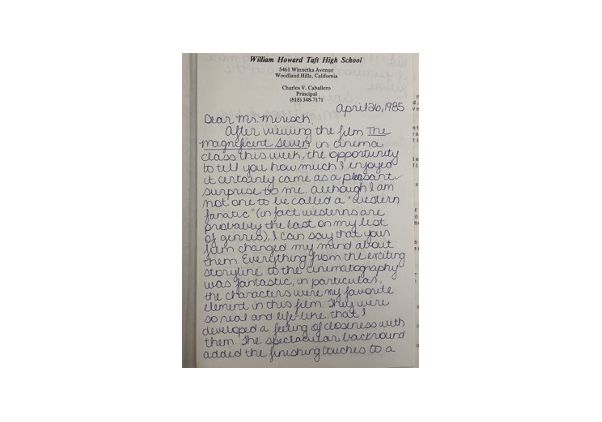 William Howard Taft High School
5461 Winnetka Avenue
Woodland Hills, California
Charles V. Caballero
Principal
(818) 348-7171
April 26, 1985
Dear Mr. Mirisch,
After viewing the film The
magnificent seven in cinema
class this week, the opportunity
to tell you how much I enjoyed
it certainly came as a pleasant
surprise to me. Although I am
not one to be called a "western
fanatic" (in fact westerns are
probably the last on my list
of genres), I can say that your
film changed my mind about
them. Everything from the exciting
storyline to the cinematography
was fantastic, in particular,
the characters were my favorite
element in this film. They were
so real and life-like that I
developed a feeling of closeness with
them. The spectacular backround
added the finishing touches to a